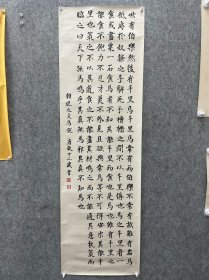 世有伯樂然後有千里馬千里馬常有而伯樂不常有故雖有名馬
祇辱於奴隸人之手駢死於槽櫪之間不以千里稱也馬之千里者一
食或盡粟一石食馬者不知其能千里而食也是馬也雖有千里之能
食不飽力不足才美不外見且欲與常馬等不可得安求其能千
里也策之不以其道食之不能盡其材鳴之而不能通其意執策而
臨之曰天下無馬嗚呼其真無馬邪其真不知馬也
韓愈之文馬說